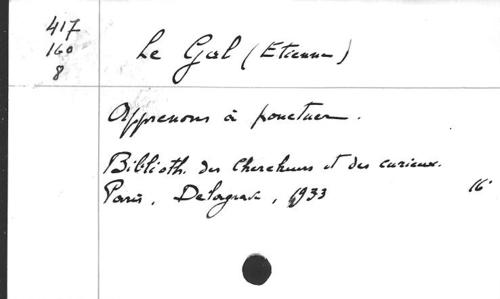 417
160
8
Le Gal (Etienne)
Apprenons à ponctuer.
Biblioth. des Chercheurs et des curieux.
Paris, Delagrave, 1933 16°